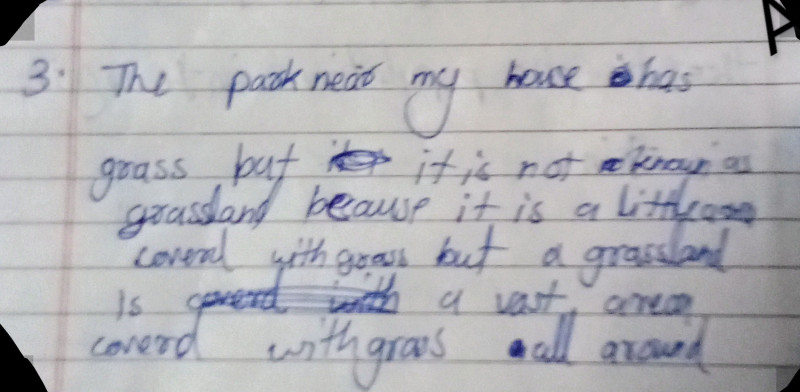 3. The park near my house has
grass but it is not known as
grassland because it is a little area
coverd with grass but a grassland
is a vast area
coverd with grass all around